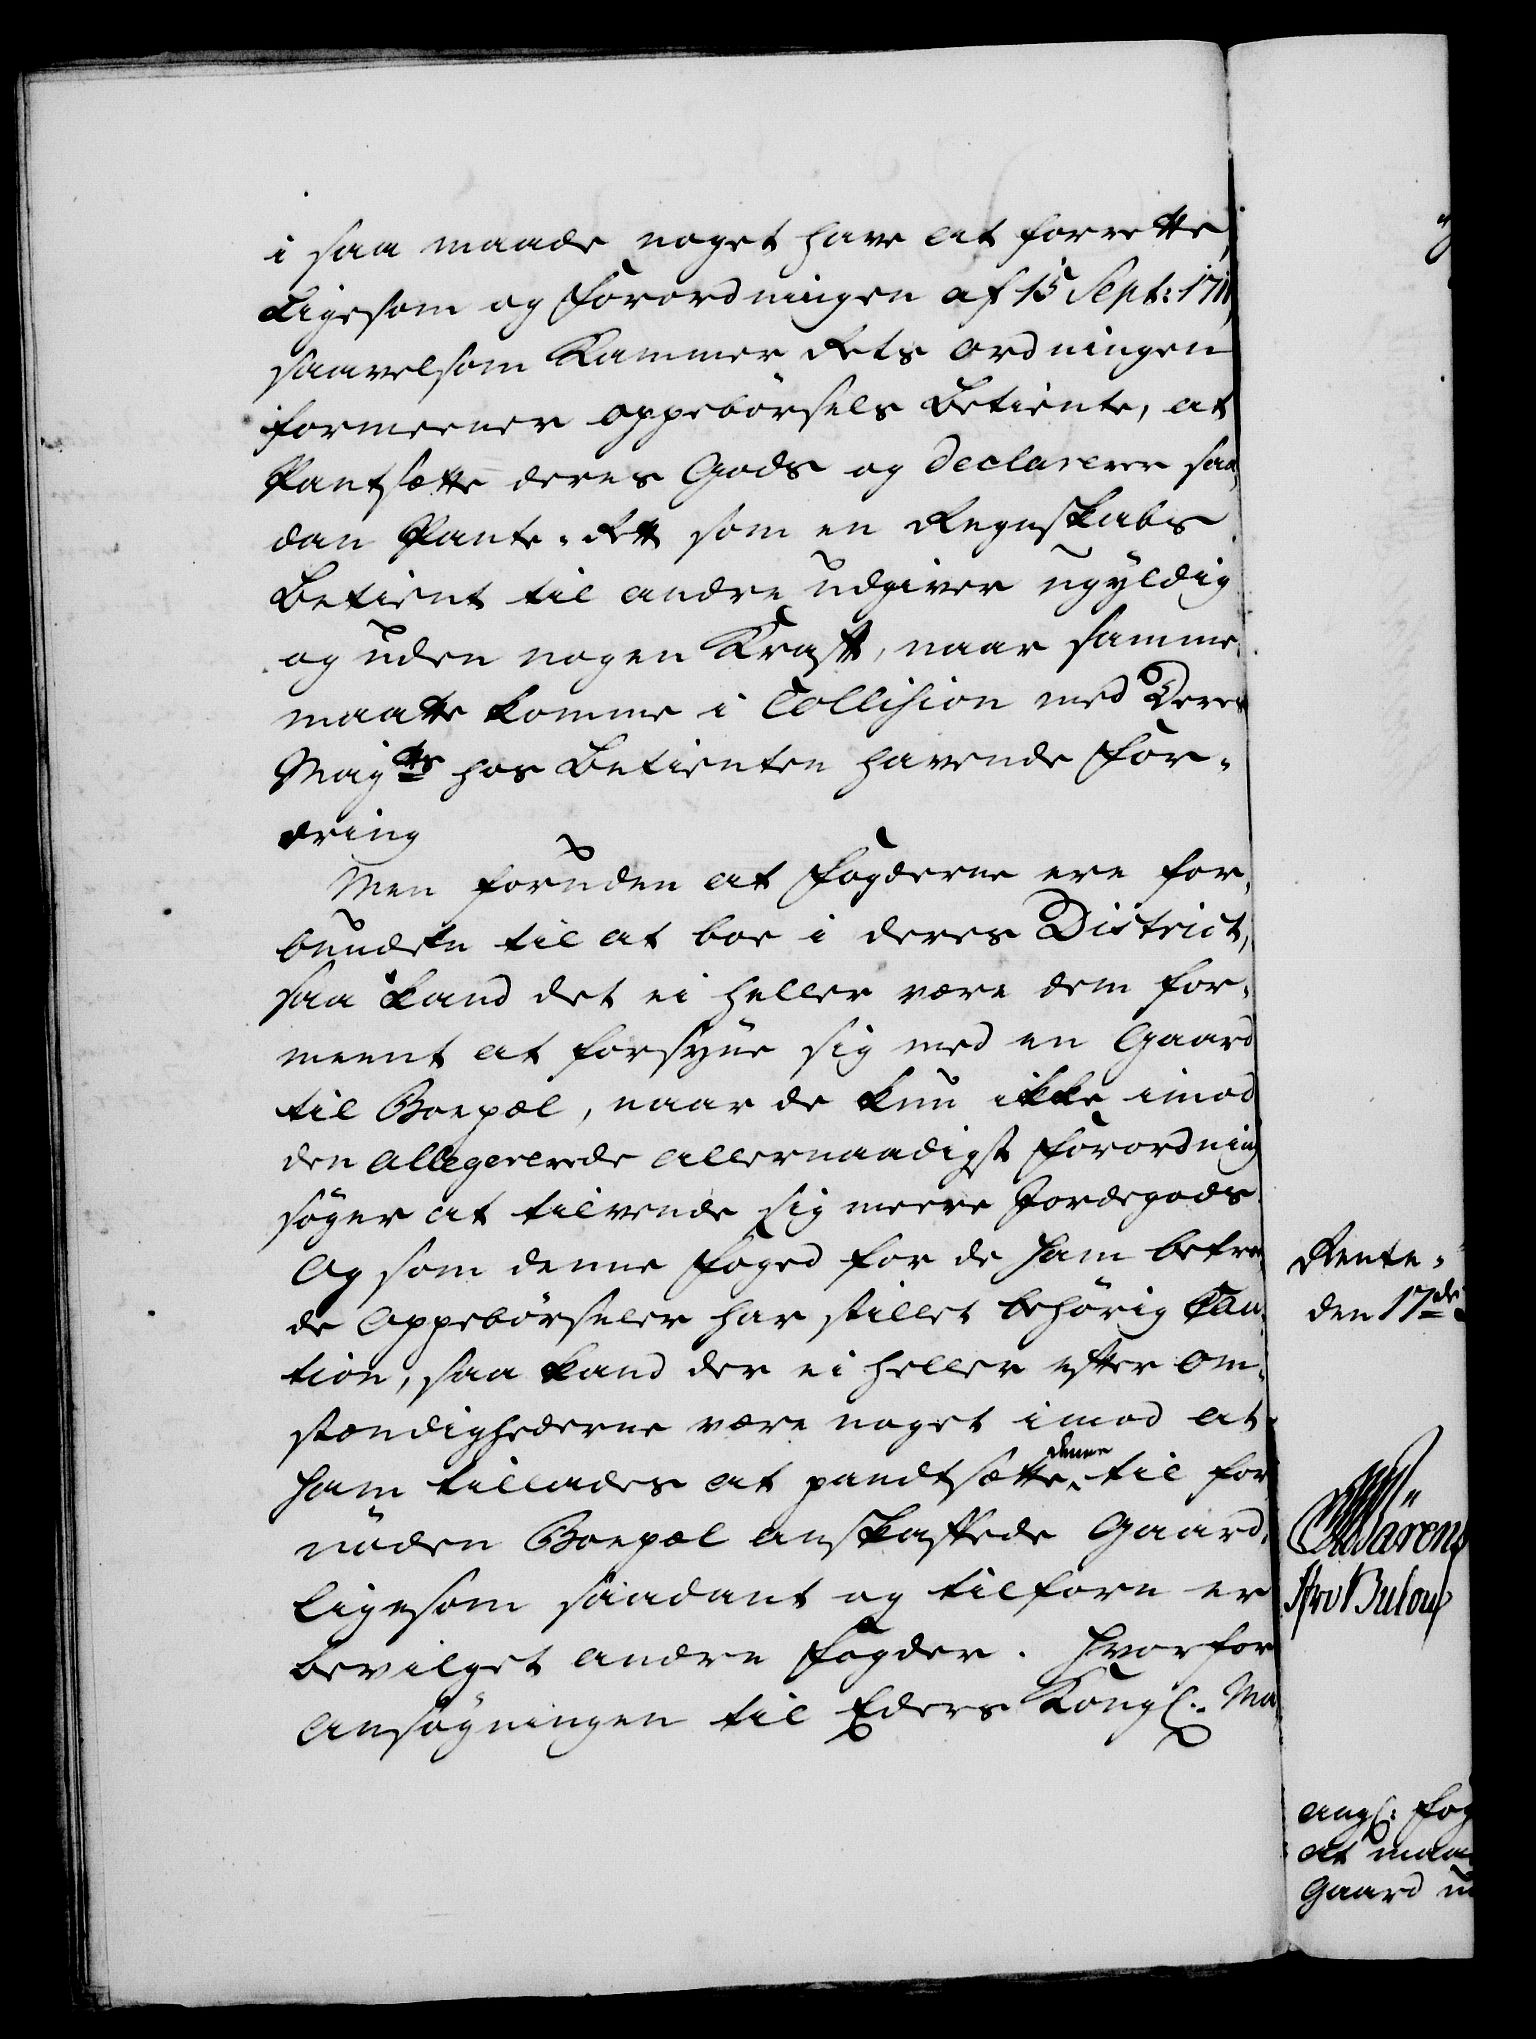 i saa maade noget have at forrette,
Ligesom og Forordningen af 15 Sept: 1711
saavelsom Kammer Rets Ordningen
formeener Oppebörsels Betiente, at
Pantsætte deres Gods og declarerer saa,
dan Pante-Rett som en Regnskabs
Betient til andre udgiver ugyldig
og uden nogen Krafft, naar samme
maatte komme i Collision med Deres
Majts hos Betienten havende For-
dring
Men foruden at Fogderne ere for,
bunden til at boe i deres District,
saa kand det ei heller være dem for,
meent at forsyne sig med en Gaard
til Boepæl, naar de kun ikke imod
den allegeerede allernaadigst Forordning
söger at tilvende sig meere Jordegods.
Og som denne Foged for de ham betroe
de Oppebörseler har stillet behörig Cau,
tion, saa kand der ei heller efter Om,
stændighederne være noget imod at
ham tillades at pandtsætte denne til for
nöden Boepæl anskaffede Gaard,
ligesom saadant og tilforn er
bevilget andre Fogder. Hvorfor
Ansögningen til Eders Kongl: Ma
Rente-
den 17de
angl: Fog
at maa
Gaard